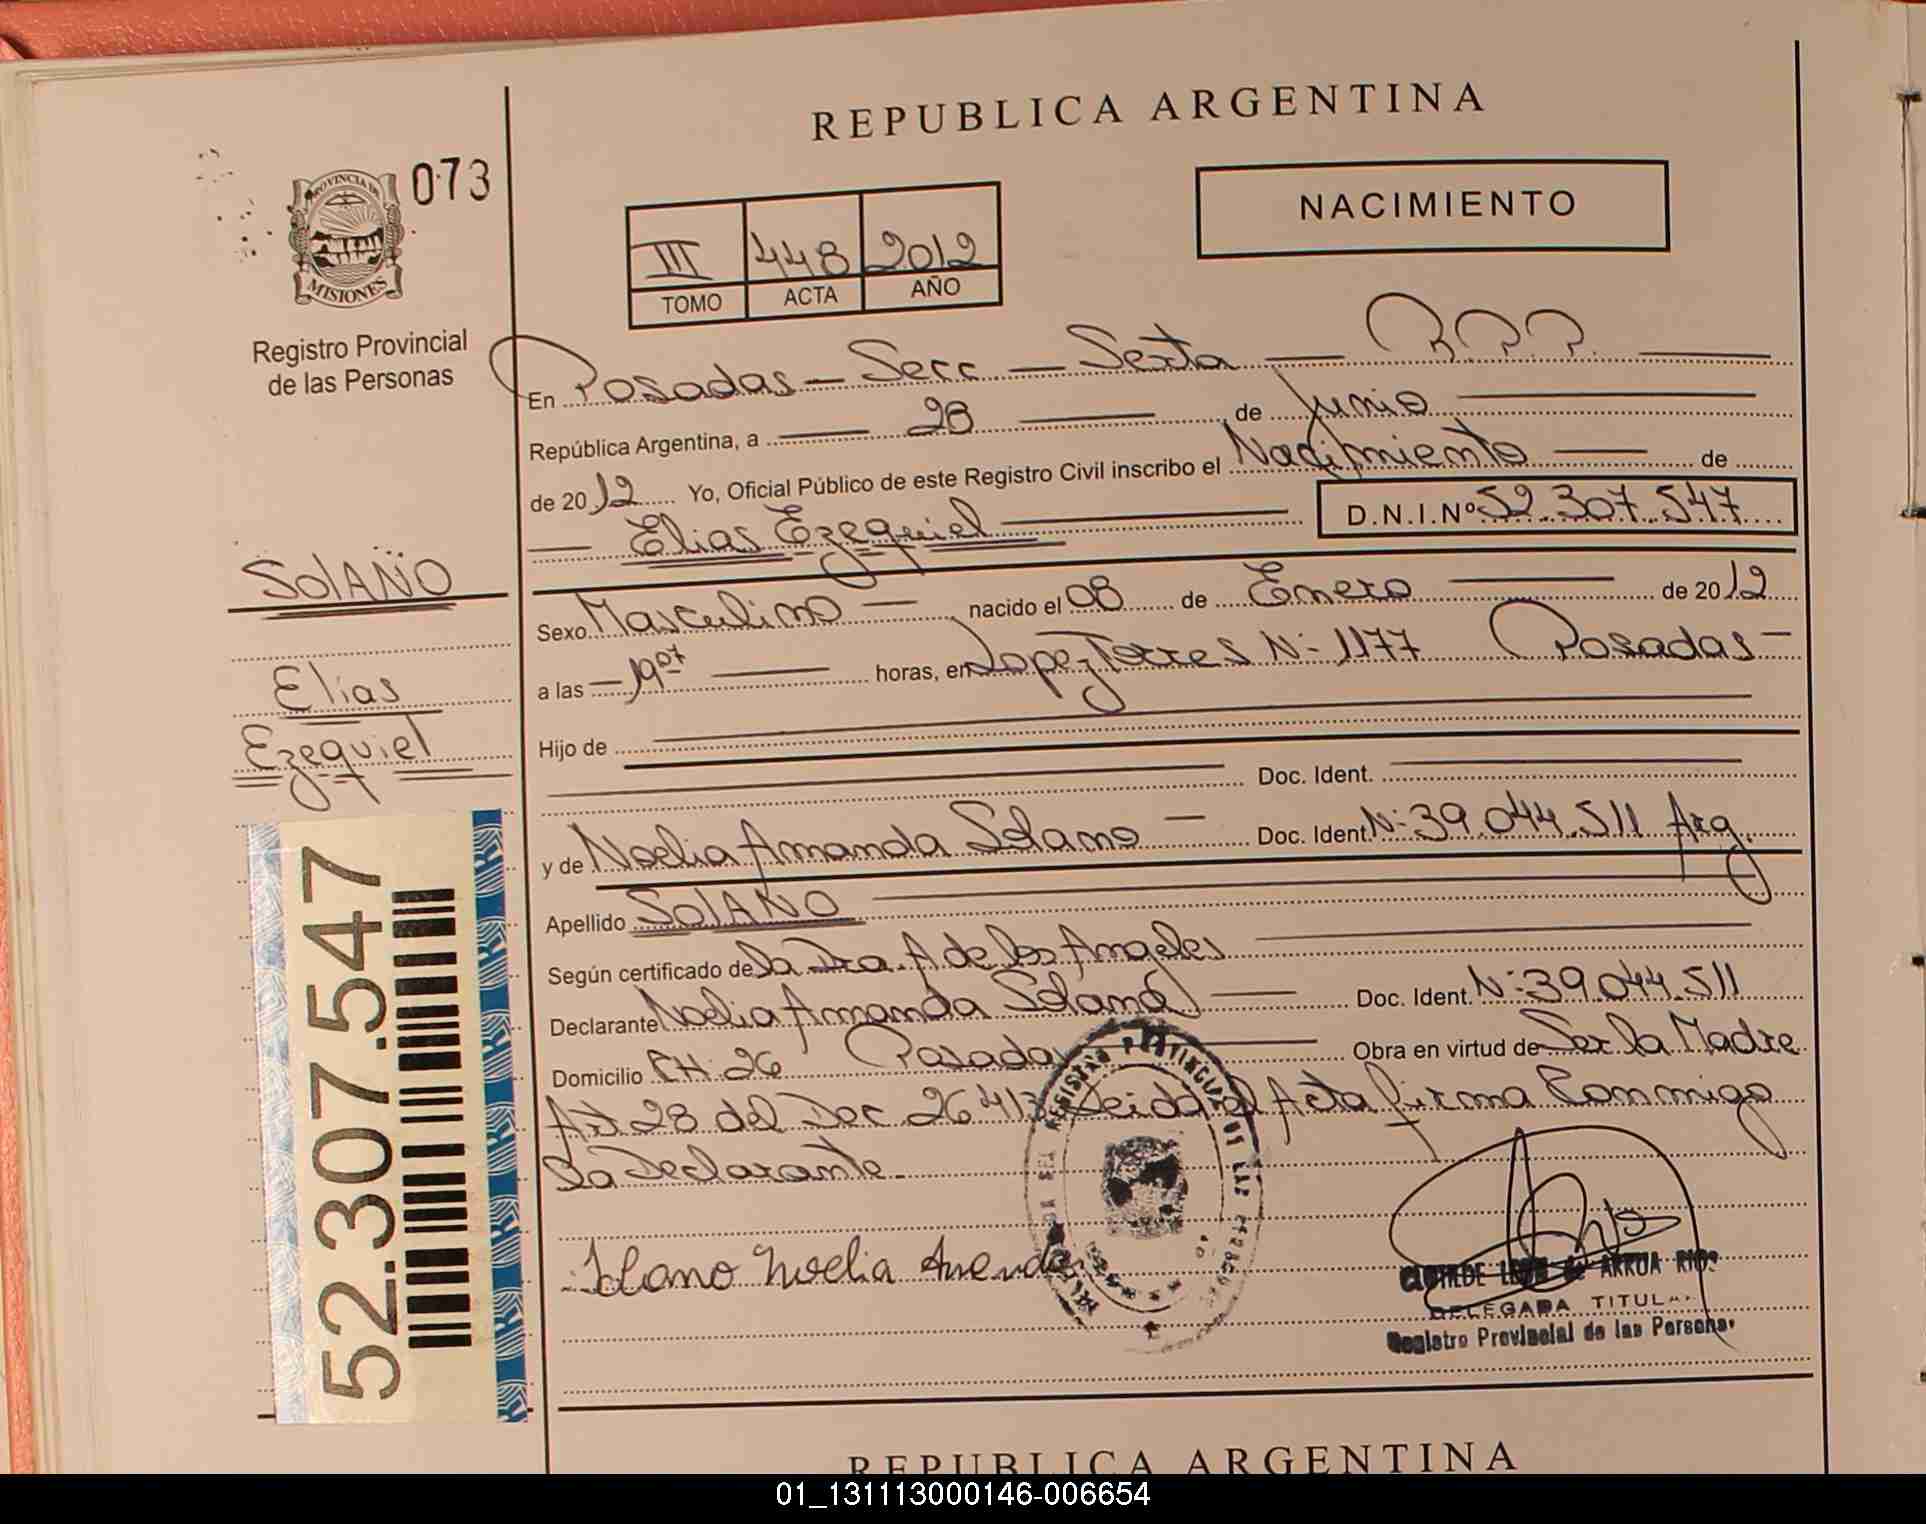 REPUBLICA ARGENTINA
073
PROVINCIA DE
MISIONES
Registro Provincial
de las Personas
NACIMIENTO
III 448 2012
TOMO ACTA AÑO
En Posadas - Secc - Sexta - R.P.P.
República Argentina, a 28 de Junio
de 2012 Yo, Oficial Público de este Registro Civil inscribo el Nacimiento de
Elias Ezequiel D.N.I.Nº 52.307.547
SolANO
Elias
Ezequiel
Sexo Masculino nacido el 08 de Enero de 2012
a las 19 07 horas, en Lopez Torres N- 1177 Posadas -
Hijo de
Doc. Ident.
y de Noelia Amanda Solano - Doc. Ident. N: 39.044.511 Arg.
Apellido SolANO
Según certificado de la Dra. A de los Angeles
Declarante Noelia Amanda Solano Doc. Ident. N: 39.044.511
Domicilio CH. 26 Posadas Obra en virtud de Ser la Madre
Art 28 del Dec 26413 Leida el Acta firma Conmigo
La Declarante.
Solano Noelia Amanda
52.307.547
ARRUA RIOS
DELEGADA TITULAR
Registro Provincial de las Personas
REPUBLICA ARGENTINA
01_131113000146-006654